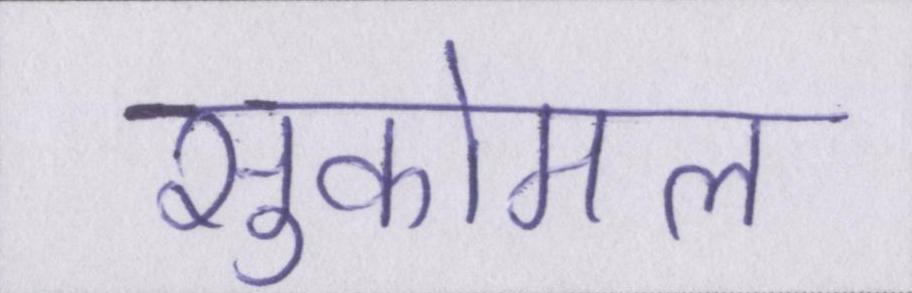 सुकोमल